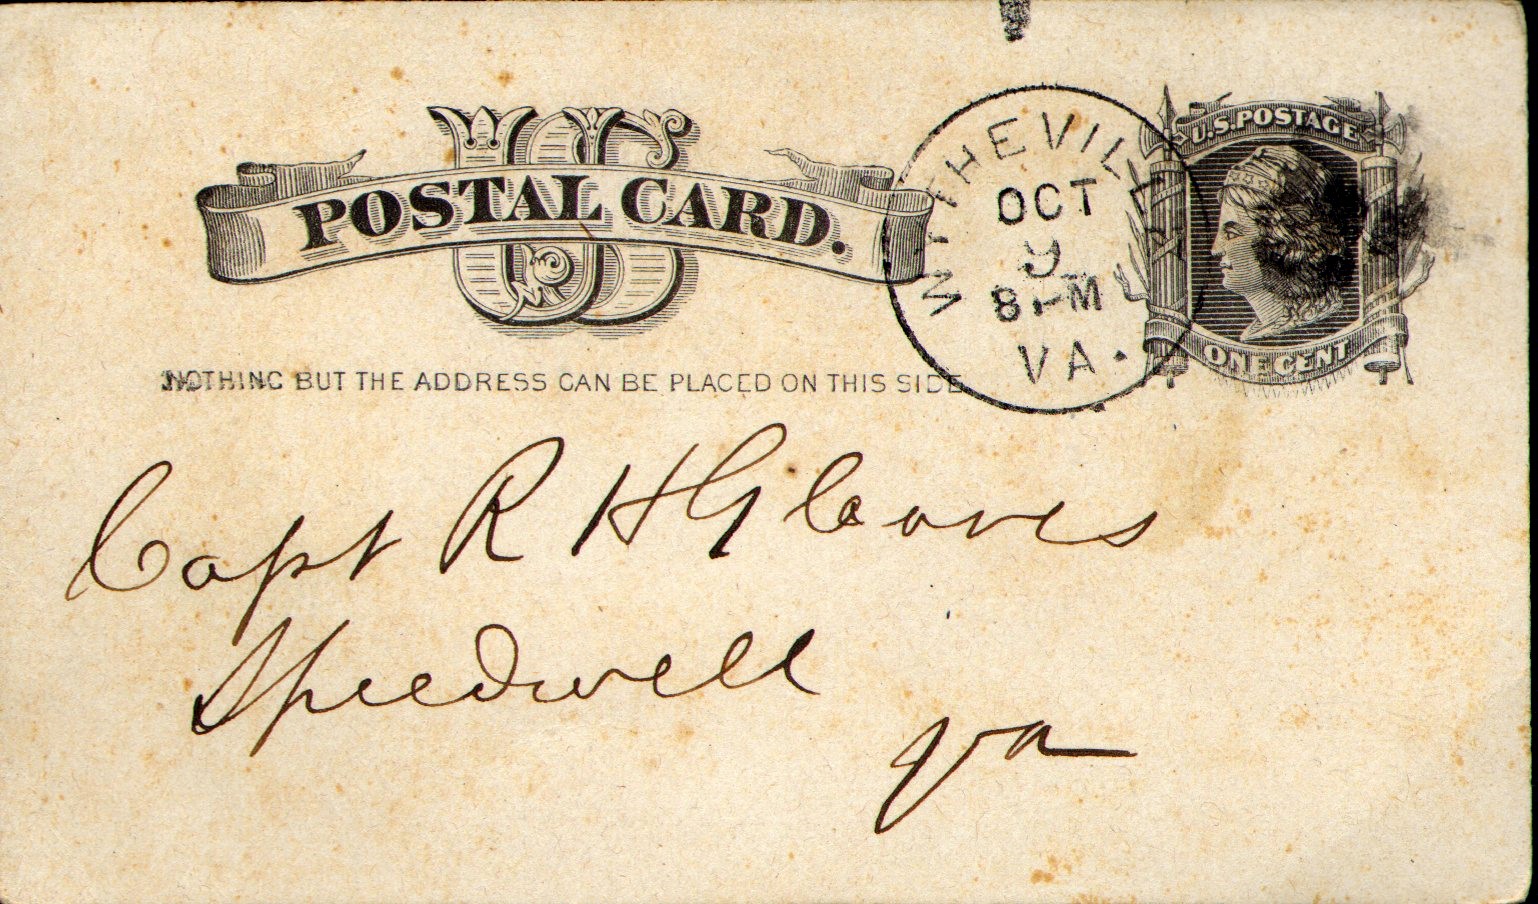 US
POSTAL CARD.
WYTHEVILLE
OCT
9
8 PM
VA.
U.S. POSTAGE
ONE CENT
NOTHING BUT THE ADDRESS CAN BE PLACED ON THIS SIDE
Capt R H Gleaves
Speedwell
Va